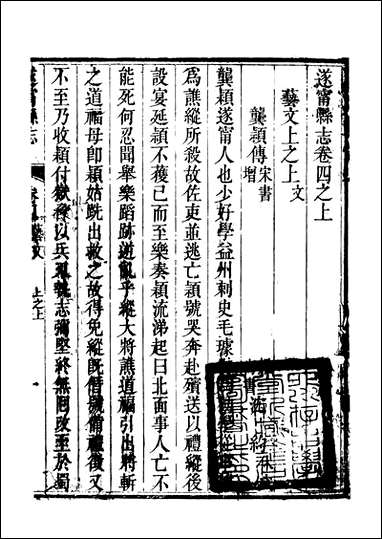 遂寧縣志卷四之上
藝文上之上文
龔穎傳宋書增
龔穎遂寧人也少好學益州刺史毛璩
為譙縱所殺故佐吏並逃亡穎號哭奔赴殯送以禮縱後
設宴延穎不獲已而至樂奏穎流涕起曰北面事人亡不
能死何忍聞舉樂蹈跡逆亂乎縱大將譙道福引出將斬
之道福母即穎姑跣出救之故得免縱既僭號備禮徵又
不至乃收穎付獄脅以兵刃執志彌堅終無回改至於蜀
遂寧縣志
上之上